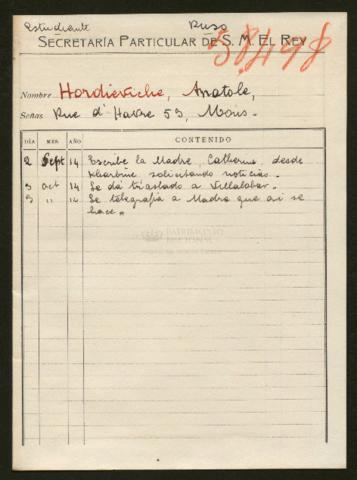 Estudiante Ruso
SECRETARÍA PARTICULAR DE S. M. EL REY
58498
Nombre Hordievitche, Anatole,
Señas Rue d'Havre 53, Mons.
DÍA MES AÑO CONTENIDO
2 Sept 14 Escribe la Madre, Catherine, desde
Kharbine solicitando noticias.
3 Oct 14 Se dá traslado a Villalobar.
3 " 14 Se telegrafia a Madre que asi se
hace.
PATRIMONIO
NACIONAL